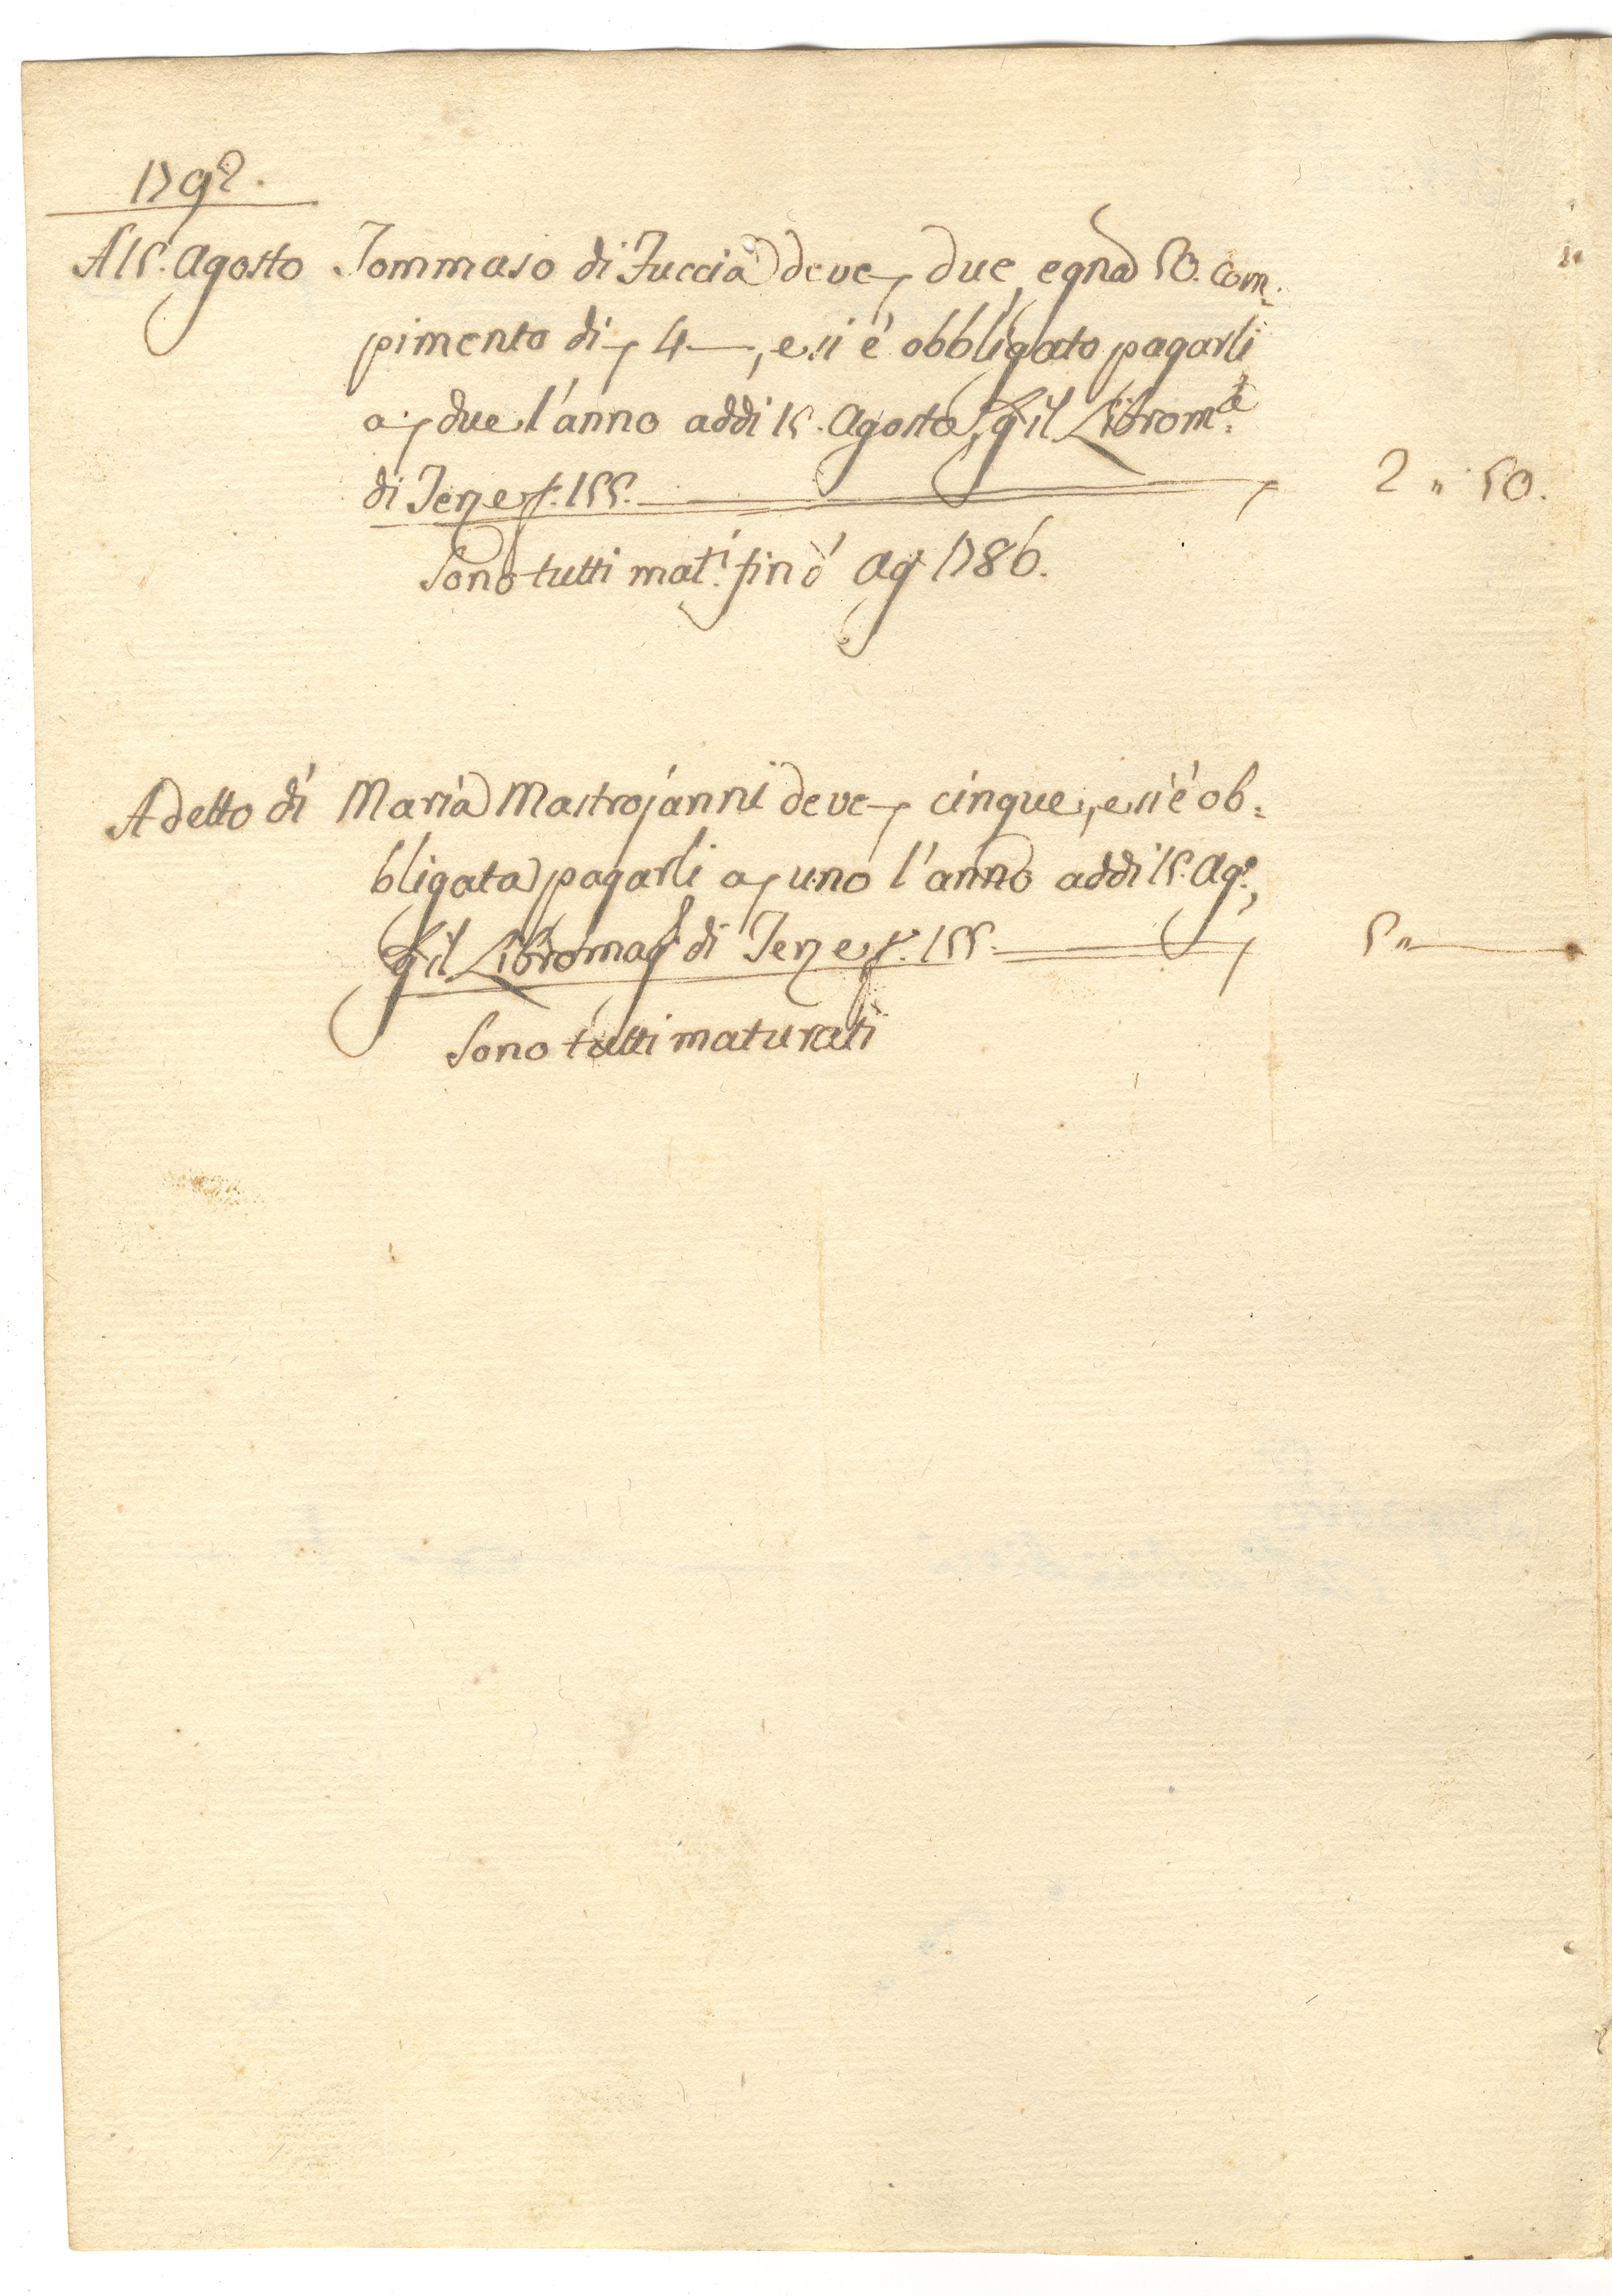 1792.
A 15. Agosto Tommaso di Fuccia deve due, e grã 50. com=
pimento di 4—, e si è obbligato pagarli
a due l'anno addi 15. Agosto, il Libro m.
di f. 155. 2 " 50.
Sono tutti mat.i fin ò Ag 1786.
A detto dì Maria Mastrojanni deve cinque, e si è ob=
bligata pagarli a uno l'anno addi 15. Ag.o,
il Libro mag di f. 155. 5 "
Sono tutti maturati